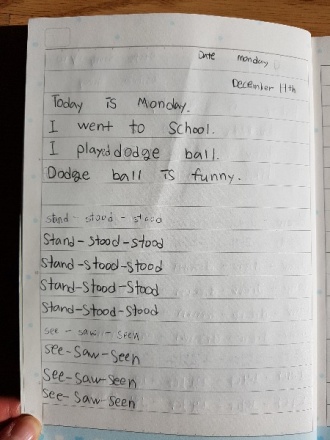 Date monday
December 11th
Today is Monday.
I went to School.
I played dodge ball.
Dodge ball is funny.
stand - stood - stood
Stand-Stood-Stood
Stand-Stood-Stood
Stand-Stood-Stood
Stand-Stood-Stood
see - saw - seen
See-Saw-Seen
See-Saw-Seen
See-Saw-Seen